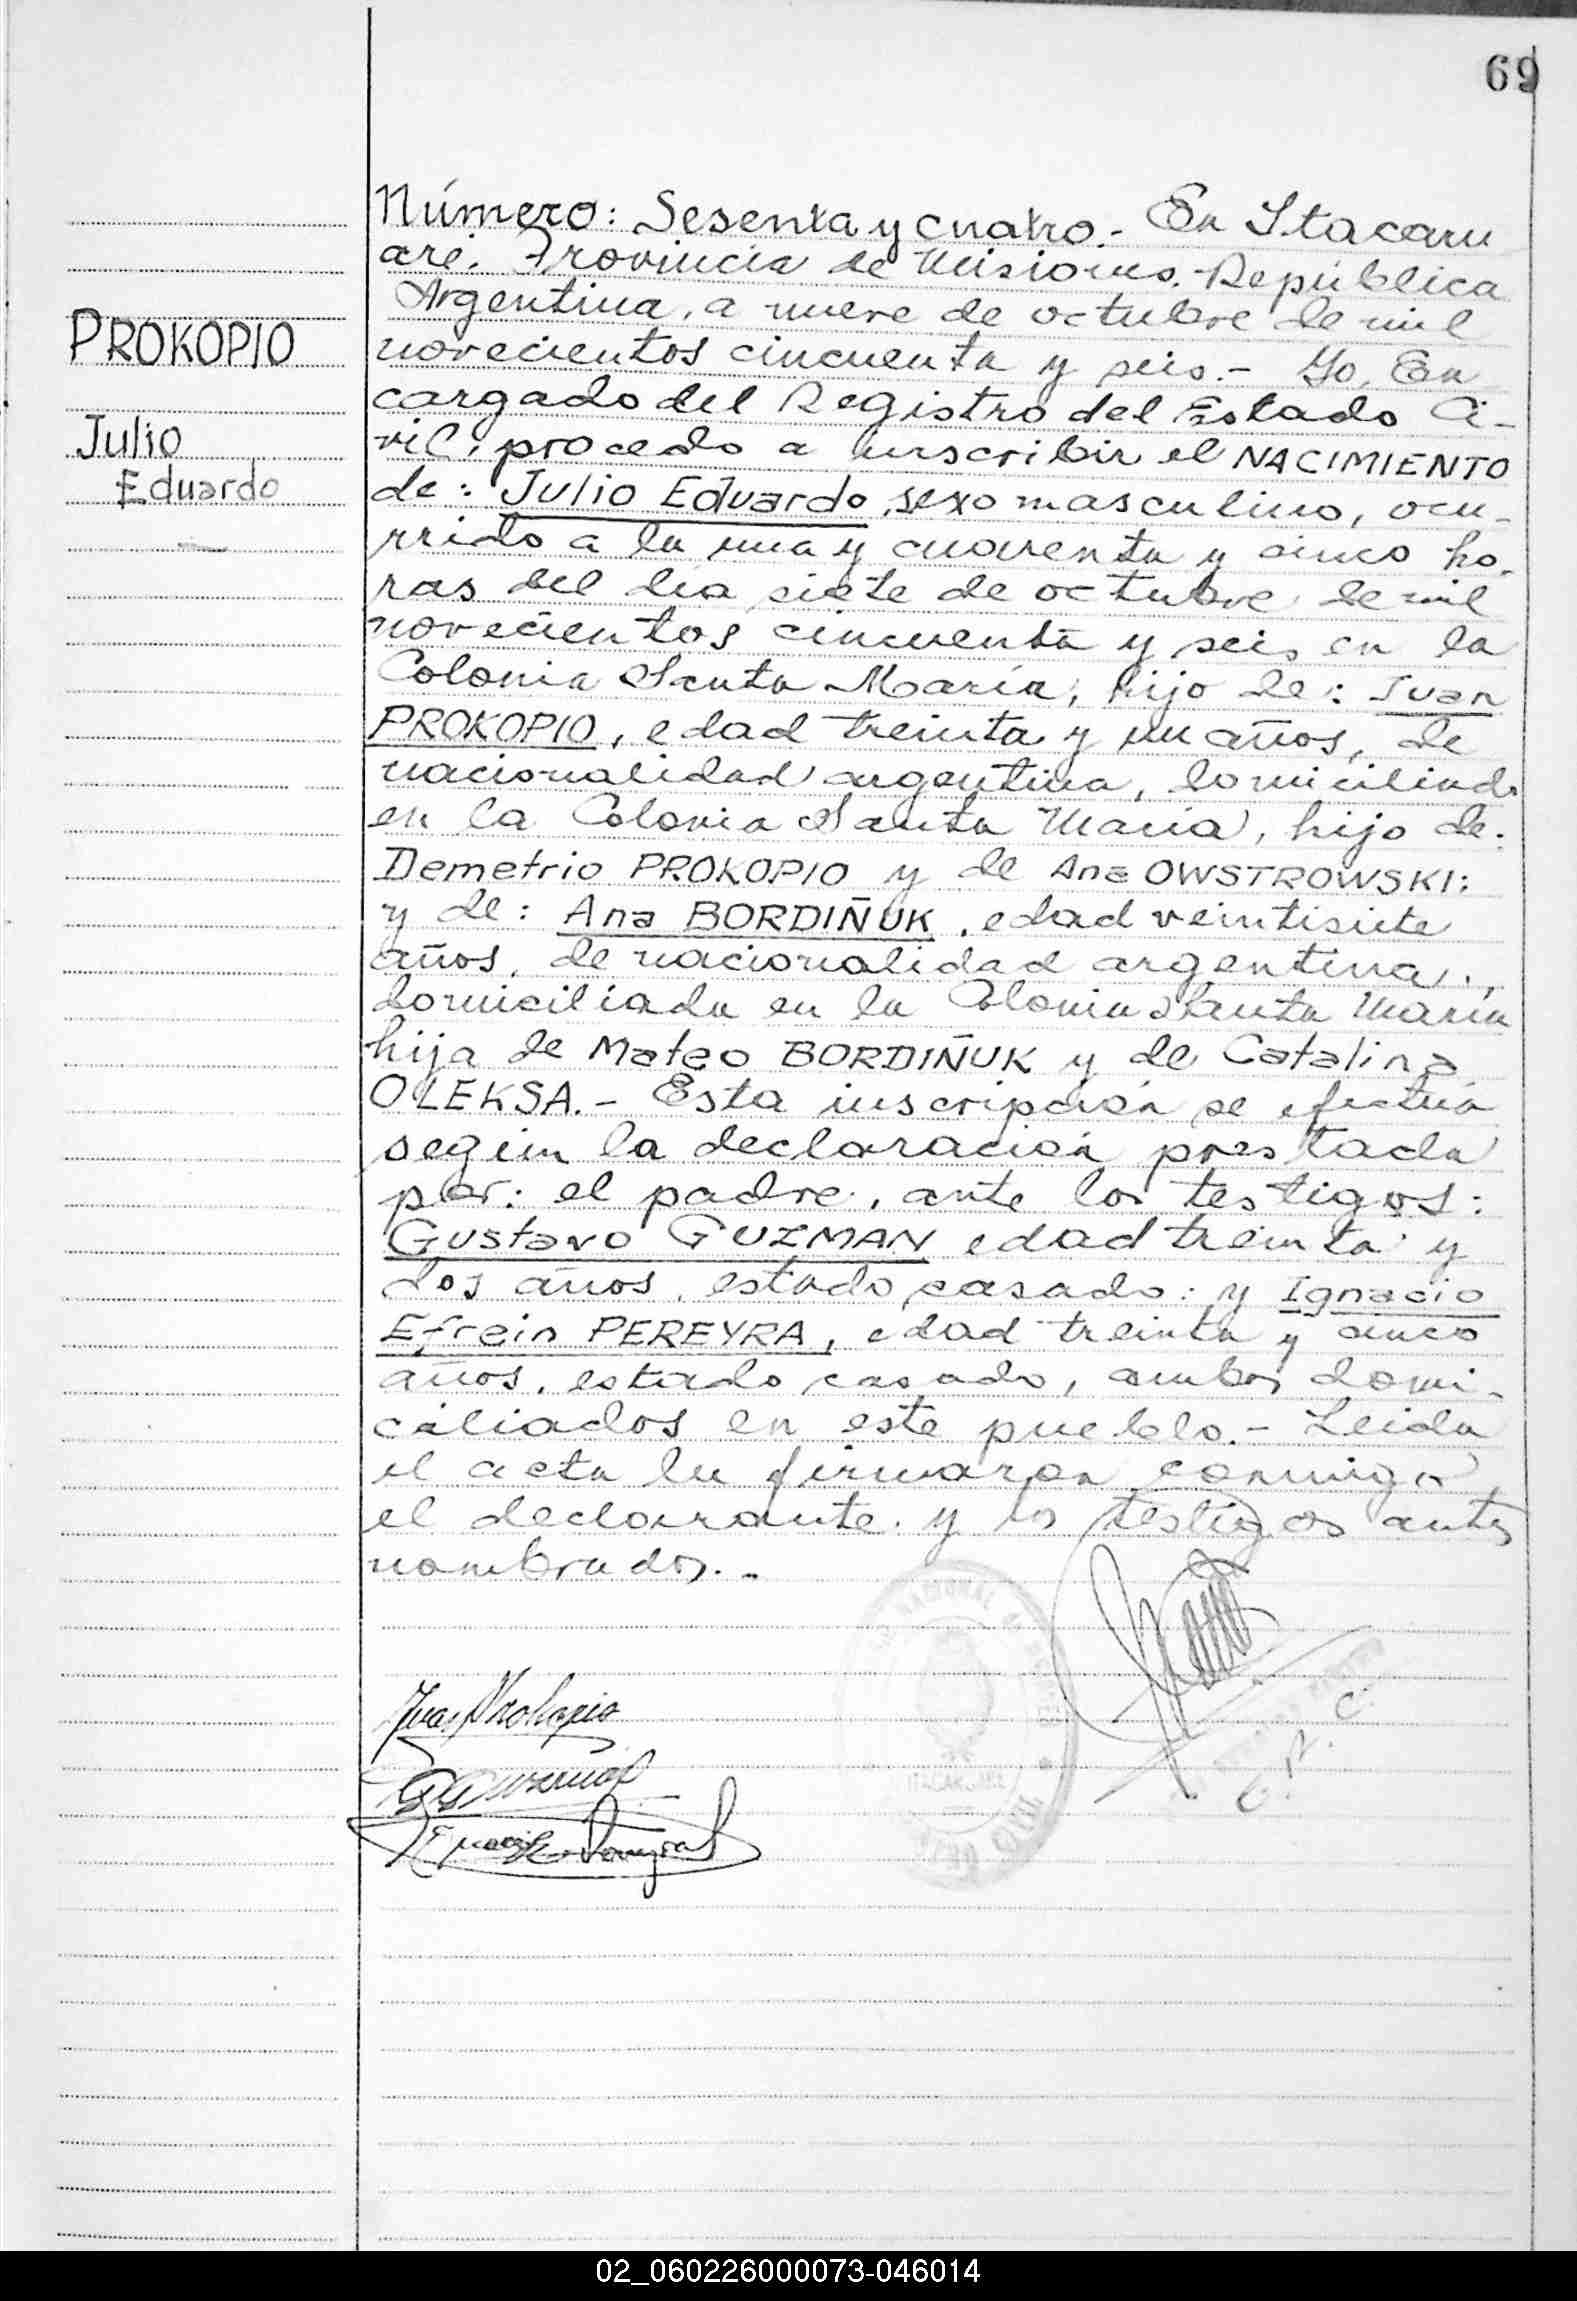 69
PROKOPIO
Julio
Eduardo
Número: Sesenta y cuatro.- En Itacaru
aré. Provincia de Misiones. República
Argentina, a nueve de octubre de mil
novecientos cincuenta y seis.- Yo, En
cargado del Registro del Estado Ci-
vil, procedo a inscribir el NACIMIENTO
de: Julio Eduardo, sexo masculino, ocu-
rrido a la una y cuarenta y cinco ho-
ras del día siete de octubre de mil
novecientos cincuenta y seis en la
Colonia Santa María, hijo de: Juan
PROKOPIO, edad treinta y un años, de
nacionalidad argentina, domiciliado
en la Colonia Santa María, hijo de:
Demetrio PROKOPIO y de Ana OWSTROWSKI;
y de: Ana BORDIÑUK, edad veintisiete
años, de nacionalidad argentina,
domiciliada en la Colonia Santa María
hija de Mateo BORDIÑUK y de Catalina
OLEKSA.- Esta inscripción se efectúa
según la declaración prestada
por: el padre, ante los testigos:
Gustavo GUZMAN edad treinta y
dos años, estado casado: y Ignacio
Efrein PEREYRA, edad treinta y cinco
años, estado casado, ambos domi-
ciliados en este pueblo.- Leida
el acta la firmaron conmigo
el declarante y los testigos antes
nombrados.-
Juan Prokopio
G Guzmán
ITACARUARE
E. R. C.
02_060226000073-046014